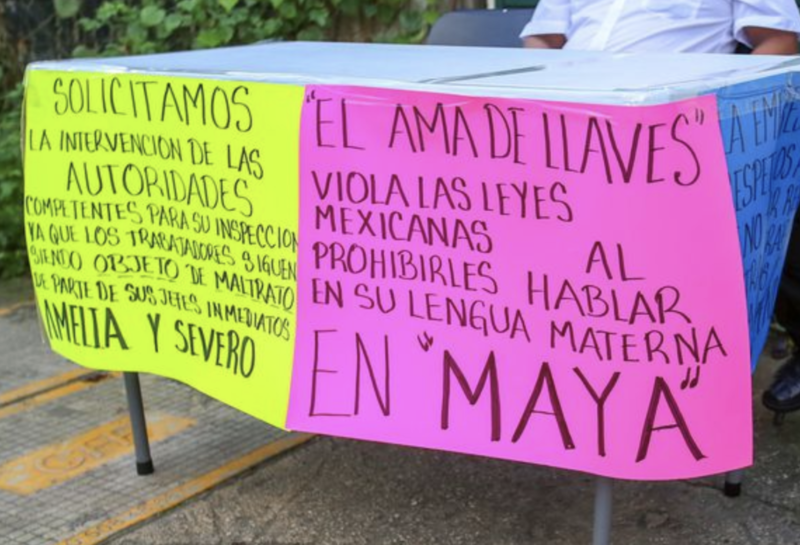 SOLICITAMOS
LA INTERVENCION DE LAS
AUTORIDADES
COMPETENTES PARA SU INSPECCION
YA QUE LOS TRABAJADORES SIGUEN
SIENDO OBJETO DE MALTRATO
DE PARTE DE SUS JEFES INMEDIATOS
AMELIA Y SEVERO
"EL AMA DE LLAVES"
VIOLA LAS LEYES
MEXICANAS AL
PROHIBIRLES HABLAR
EN SU LENGUA MATERNA
EN "MAYA"